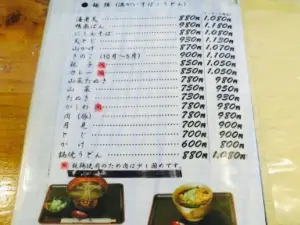 ● 麺類 (温かいそば・うどん)
海老天 880円 1,080円
鴨南ばん 980円 1,180円
にしんそば 880円 1,080円
天とじ 930円 1,130円
山かけ 870円 1,070円
きのこ (10月~5月) 900円 1,100円
親子 850円 1,050円
カレー 850円 1,050円
山菜たぬき 780円 980円
山菜 750円 950円
たぬき 730円 930円
かしわ 780円 980円
肉(豚) 780円 980円
月見 700円 900円
とじ 700円 900円
かけ 600円 800円
鍋焼うどん 880円 1,080円